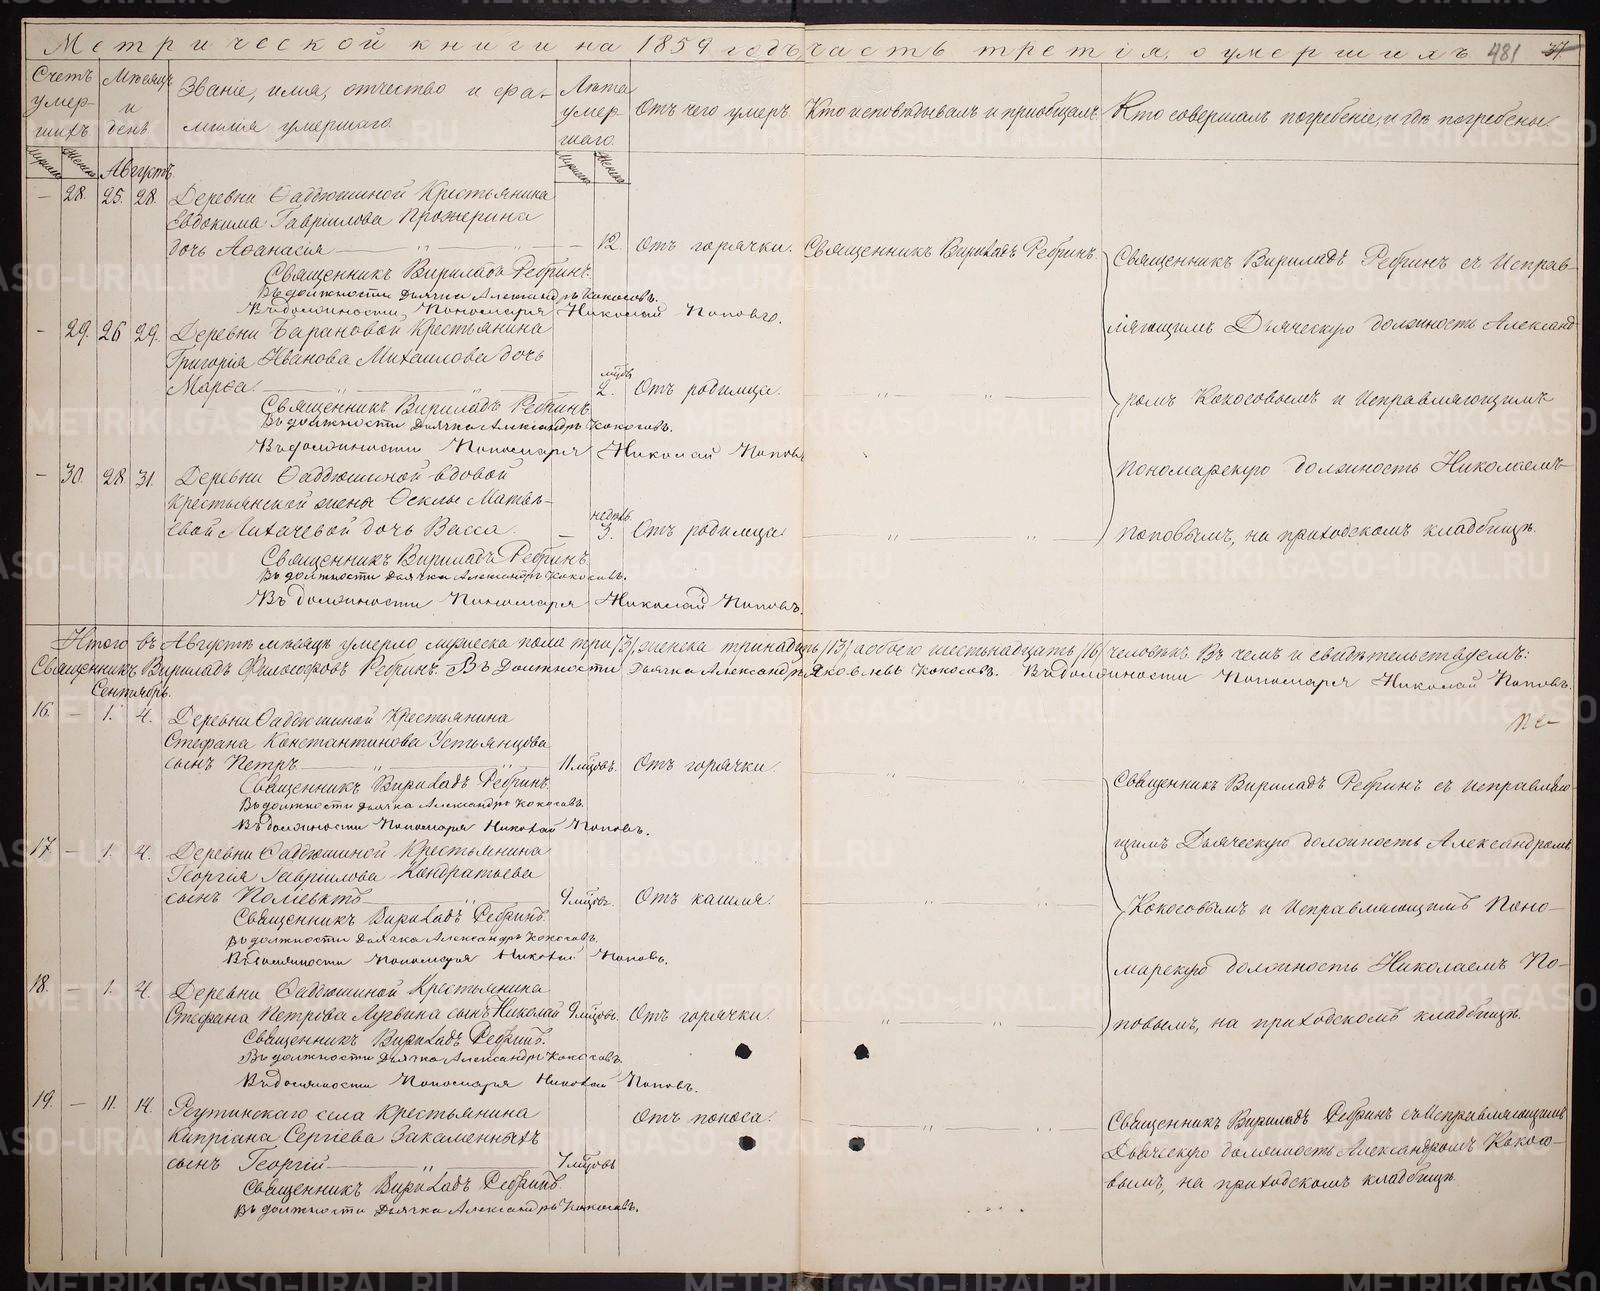 Метрической книги на 1859 годъ часть третія, о умершихъ 481 37.
Счетъ умер-шихъ.
Мѣсяцъ и день
Званіе, имя, отчество и фа-
милія умершаго.
Лѣта умер-шаго.
Отъ чего умеръ.
Кто исповѣдывалъ и пріобщалъ.
Кто совершалъ погребеніе, и гдѣ погребены.
Августъ.
— 28. 25. 28. Деревни Ѳаддюшиной Крестьянина
Евдокима Гавріилова Прожерина
дочь Аѳанасія — 12. Отъ горячки. Священникъ Вириладъ Ребринъ.
Священникъ Вириладъ Ребринъ.
Въ должности Дьячка Александръ Кокосовъ.
Въ должности, Пономаря Николай Поповъ.
— 29. 26 29. Деревни Барановой Крестьянина
Григорія Иванова Михаилова дочь
Марѳа. 2. мцовъ Отъ родимца.
Священникъ Вириладъ Ребринъ
Въ должности Дьячка Александръ Кокосовъ.
Въ должности Пономаря Николай Поповъ
— 30. 28 31. Деревни Ѳаддюшиной вдовой
Крестьянской жены Ѳеклы Матвѣ-
евой Лихачевой дочь Васса. недѣль 3. Отъ родимца
Священникъ Вириладъ Ребринъ.
Въ должности Дьячка Александръ Кокосовъ.
Въ должности Пономаря Николай Поповъ.
Священникъ Вириладъ Ребринъ съ Исправ-
ляющимъ Дьяческую должность Александ-
ромъ Кокосовымъ и Исправляющимъ
Пономарскую должность Николаемъ
Поповымъ, на приходскомъ кладбищѣ.
Итого въ Августѣ мѣсяцѣ умерло мужеска пола три /3/, женска тринадцать /13/ обоего шестьнадцать /16/ человѣкъ. Въ чемъ и свидѣтельствуемъ:
Священникъ Вириладъ Философовъ Ребринъ. Въ Должности Дьячка Александръ Яковлевъ Кокосовъ. Въ должности Пономаря Николай Поповъ.
Сентябрь.
16. — 1. 4. Деревни Ѳаддюшиной Крестьянина
Стефана Константинова Устьянцова
сынъ Петръ 11 мцовъ. Отъ горячки.
Священникъ Вириладъ Ребринъ.
Въ должности Дьячка Александръ Кокосовъ.
Въ должности Пономаря Николай Поповъ.
17 — 1. 4. Деревни Ѳаддюшиной Крестьянина
Георгія Гавриилова Кондратьева
сынъ Полиевктъ 9 мцовъ. Отъ кашля.
Священникъ Вириладъ Ребринъ.
Въ должности Дьячка Александръ Кокосовъ.
Въ должности Пономаря Николай Поповъ.
18. — 1. 4. Деревни Ѳаддюшиной Крестьянина
Стефана Петрова Лузвина сынъ Николай 9 мцовъ. Отъ горячки.
Священникъ Вириладъ Ребринъ.
Въ должности Дьячка Александръ Кокосовъ.
Въ должности Пономаря Николай Поповъ.
Священникъ Вириладъ Ребринъ съ исправляю-
щимъ Дьяческую должность Александромъ
Кокосовымъ и Исправляющимъ Поно-
марскую должность Николаемъ По-
повымъ, на приходскомъ кладбищѣ.
19. — 11. 14. Реутинскаго села Крестьянина
Кипріана Сергіева Закаменныхъ
сынъ Георгій 7 мцовъ Отъ поноса.
Священникъ Вириладъ Ребринъ.
Въ должности Дьячка Александръ Кокосовъ.
Священникъ Вириладъ Ребринъ съ Исправляющимъ
Дьяческую должность Александромъ Кокосо-
вымъ, на приходскомъ кладбищѣ.
METRIKI.GASO-URAL.RU